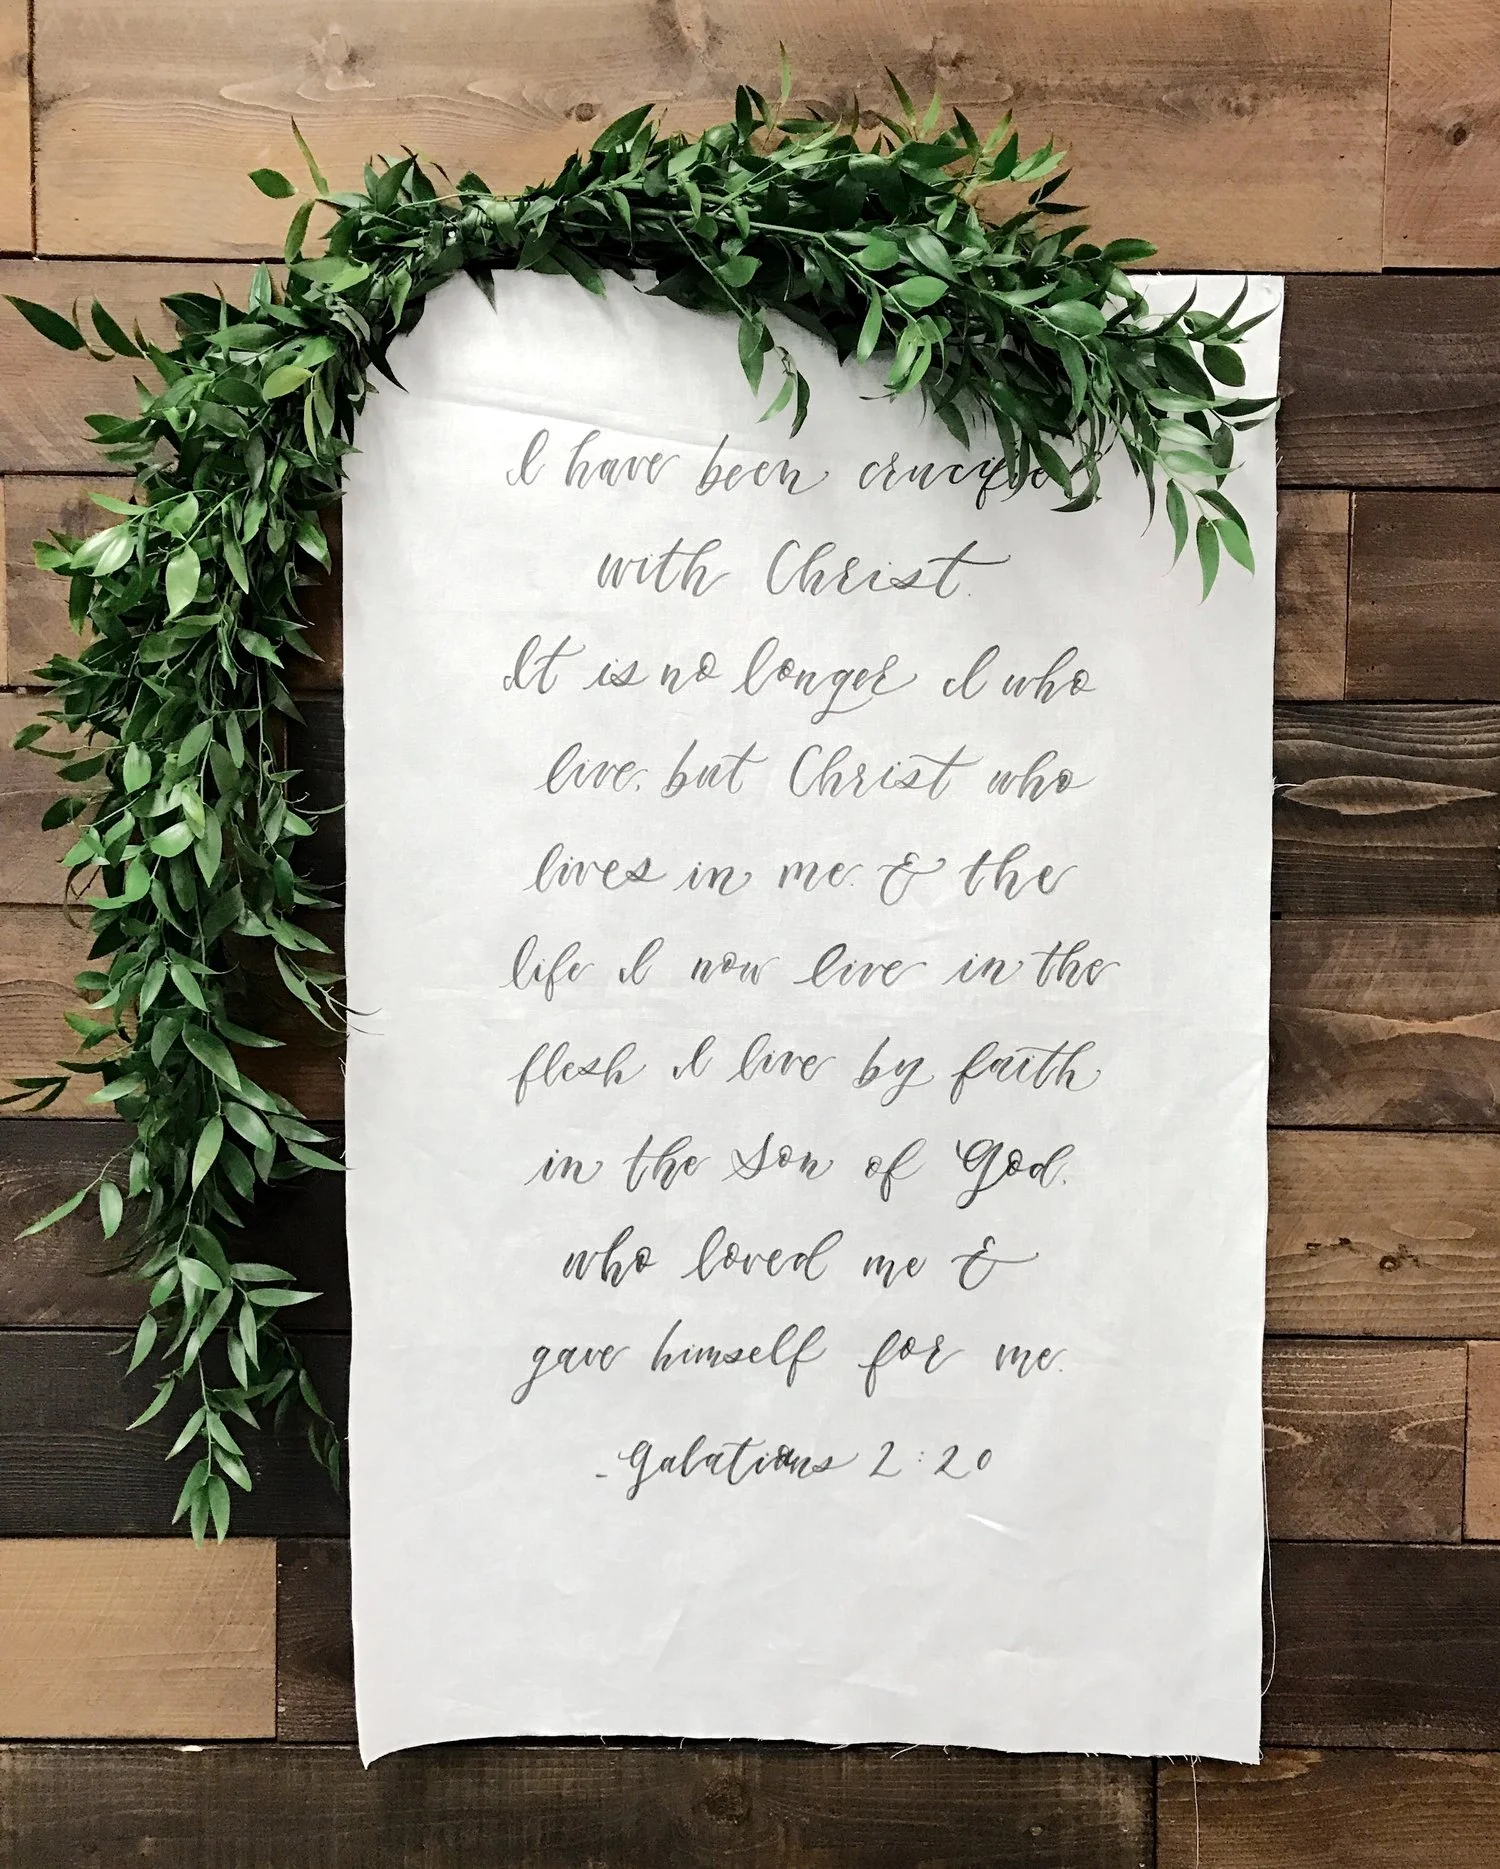 I have been crucified
with Christ.
It is no longer I who
live, but Christ who
lives in me. & the
life I now live in the
flesh I live by faith
in the Son of God,
who loved me &
gave himself for me.
- Galatians 2:20